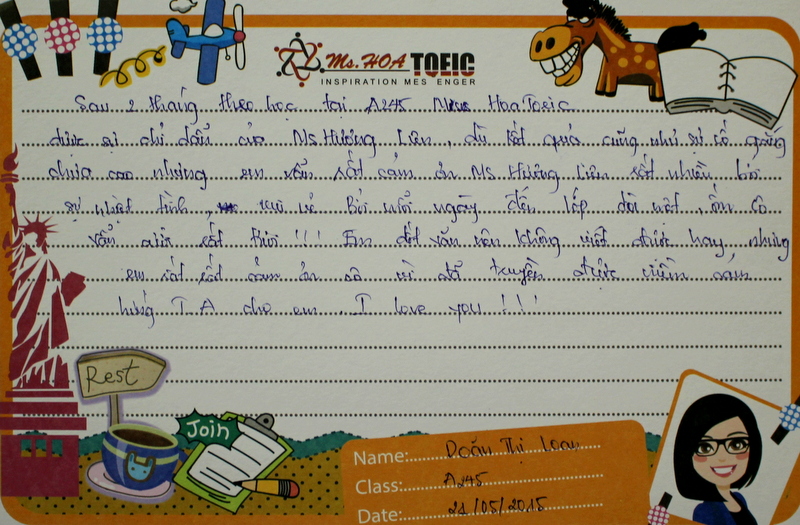 Ms.HOA TOEIC
INSPIRATION MES ENGER
Sau 2 tháng theo học tại A245 Hoa Toeic
được sự chỉ dẫn của Ms Hương Liên, dù kết quả cũng như sự cố gắng
chưa cao nhưng em vẫn rất cảm ơn Ms Hương Liên rất nhiều bởi
sự nhiệt tình, vui vẻ Bởi mỗi ngày đến lớp dù mệt, ốm cô
vẫn cười rất tươi!!! Em dốt văn nên không viết được hay, nhưng
em rất rất cảm ơn cô vì đã truyền được niềm cảm
hứng T.A cho em. I love you!!!
Rest
Join
Name: Doãn Thị Loan
Class: A245
Date: 21/05/2015